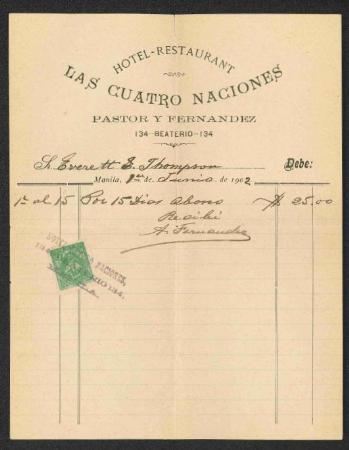 HOTEL-RESTAURANT
LAS CUATRO NACIONES
PASTOR Y FERNANDEZ
134-BEATERIO-134
Sr. Everett E. Thompson Debe:
Manila, 1ro de Junio de 1902
1o al 15 Por 15 dias abono $ 25.00
Recibi
A. Fernandez
NACIONES,
134.